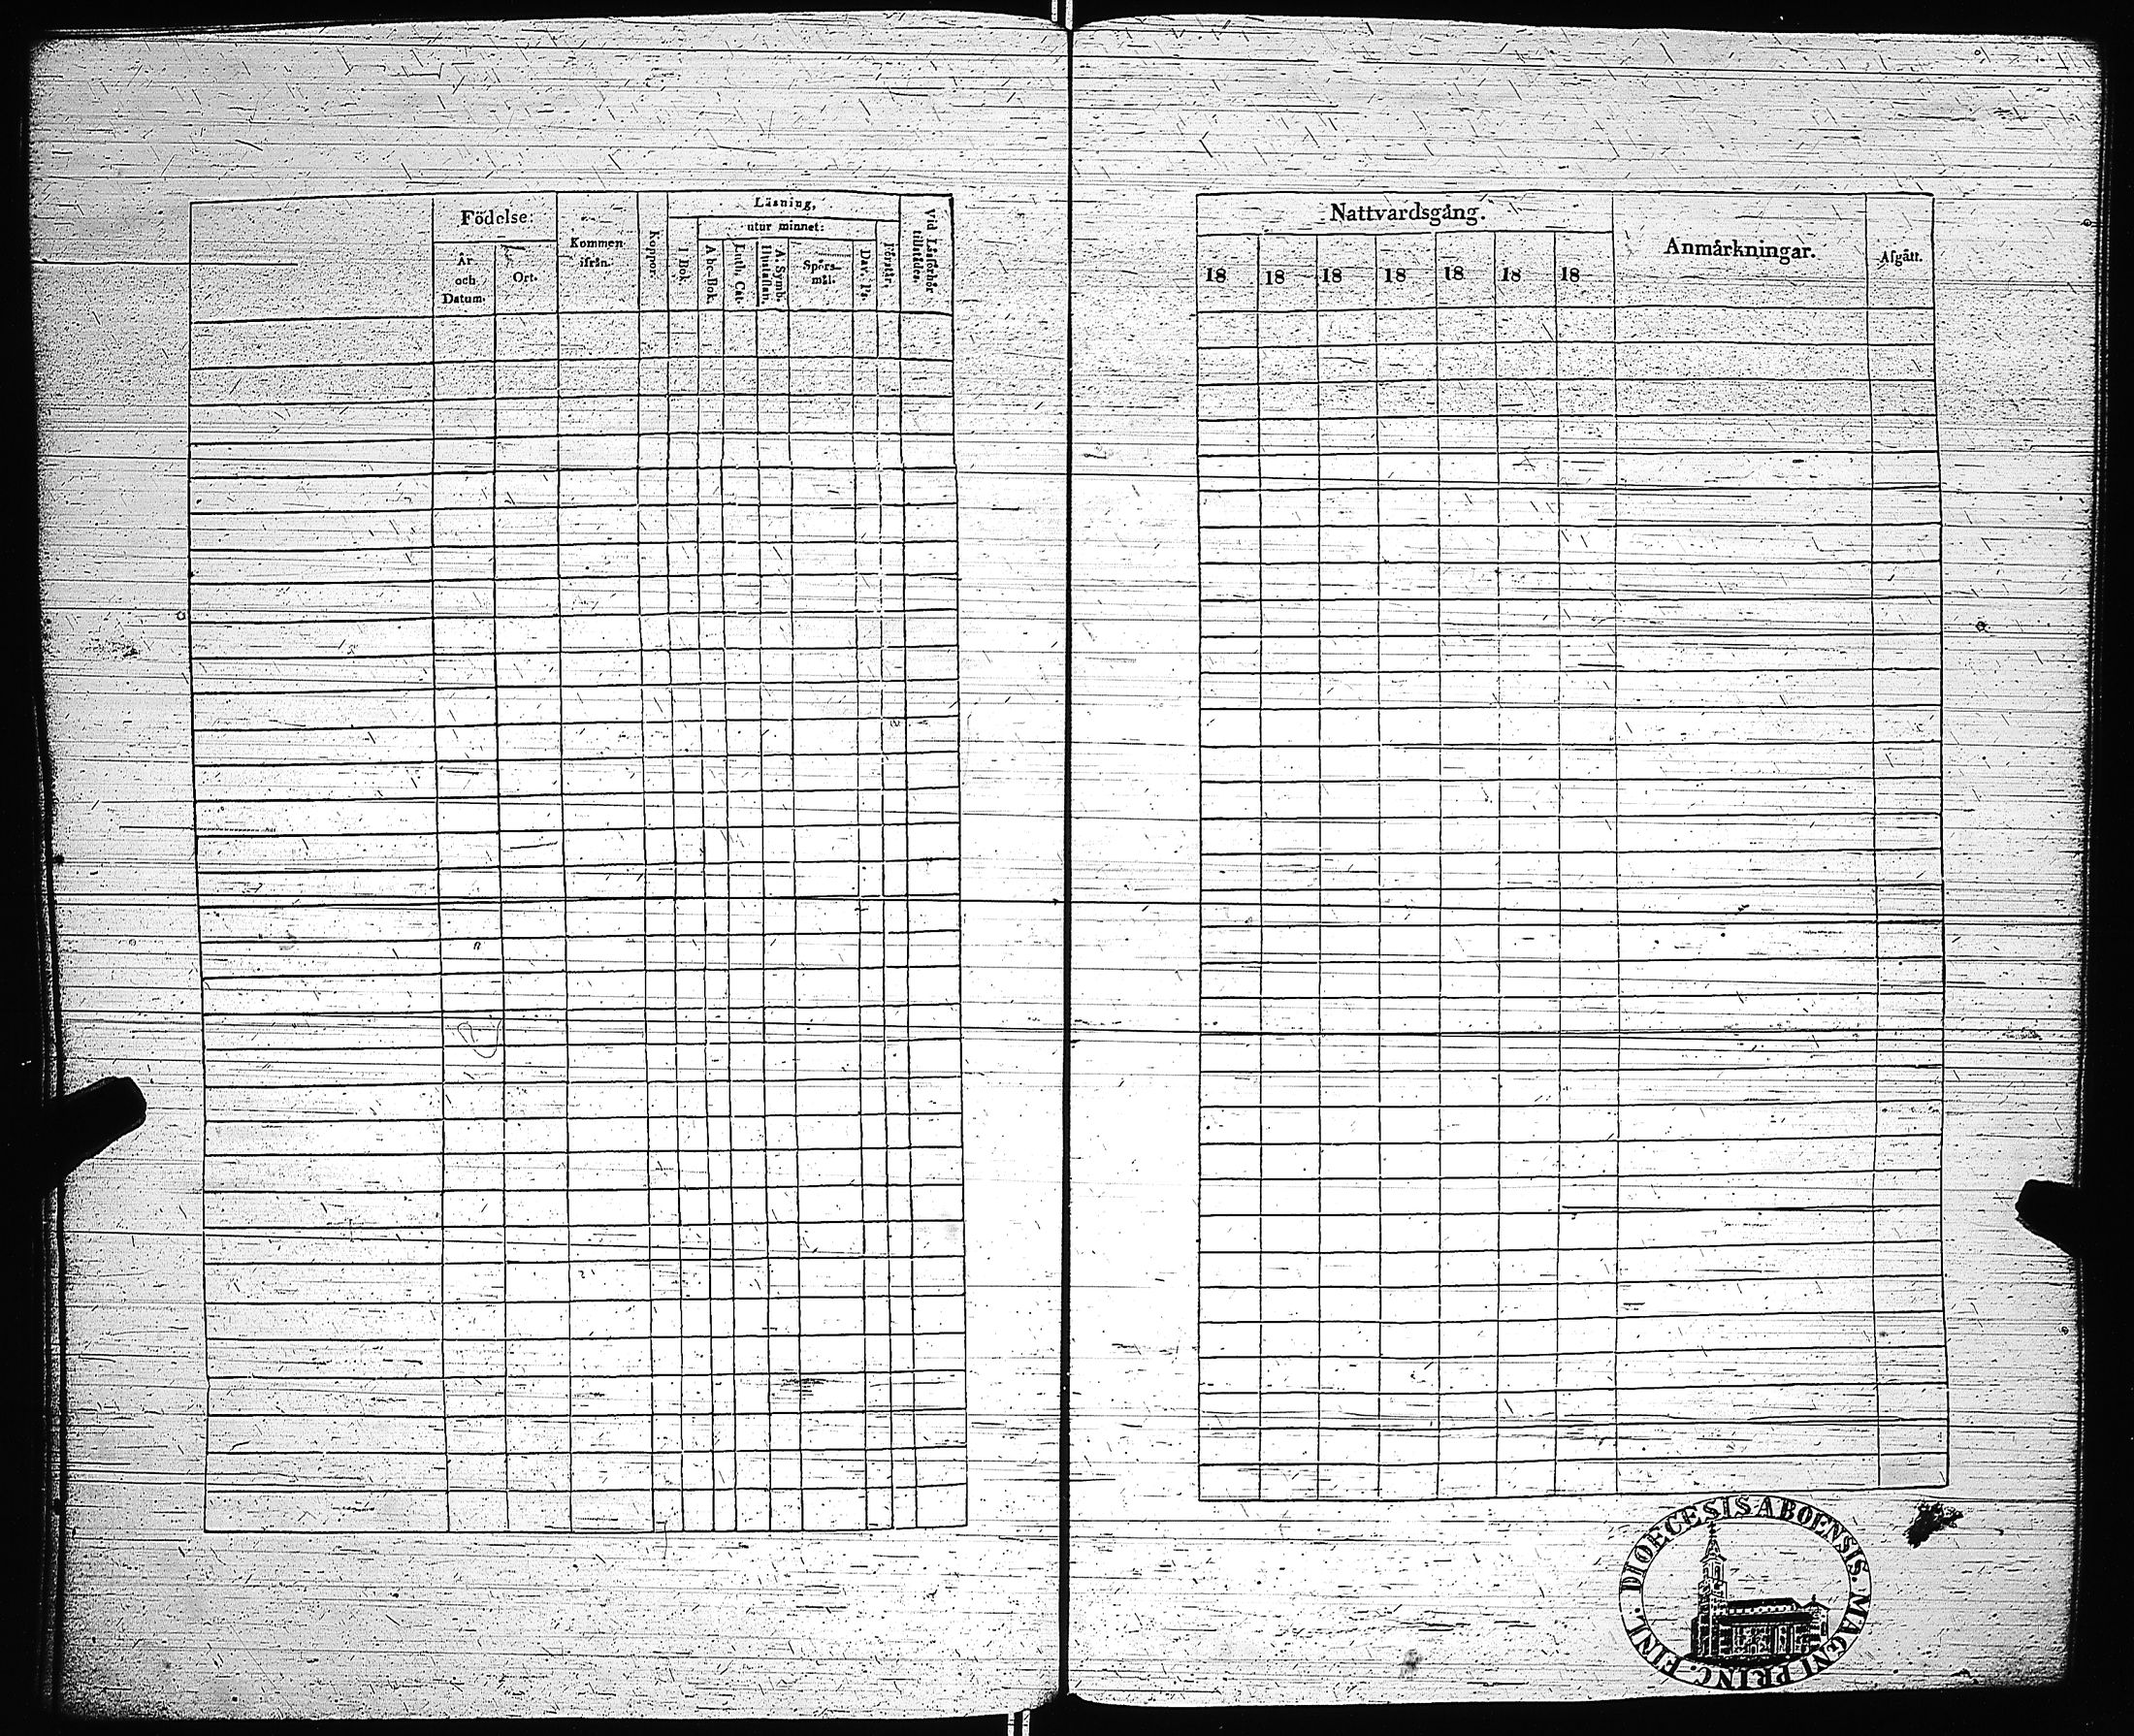 Födelse:
År
och
Datum.
Ort.
Kommen
ifrån.
Koppor.
Läsning,
utur minnet:
I Bok.
Abc-Bok.
Luth. Cat.
A. Symb.
Hustaflan.
Spörs-
mål.
Dav. Ps.
Förstår.
Vid Läsförhör
tillstädes.
Nattvardsgång.
18 18 18 18 18 18 18
Anmärkningar.
Afgått.
DIOECESIS ABOENSIS. MAGNI PRINC. FINL.